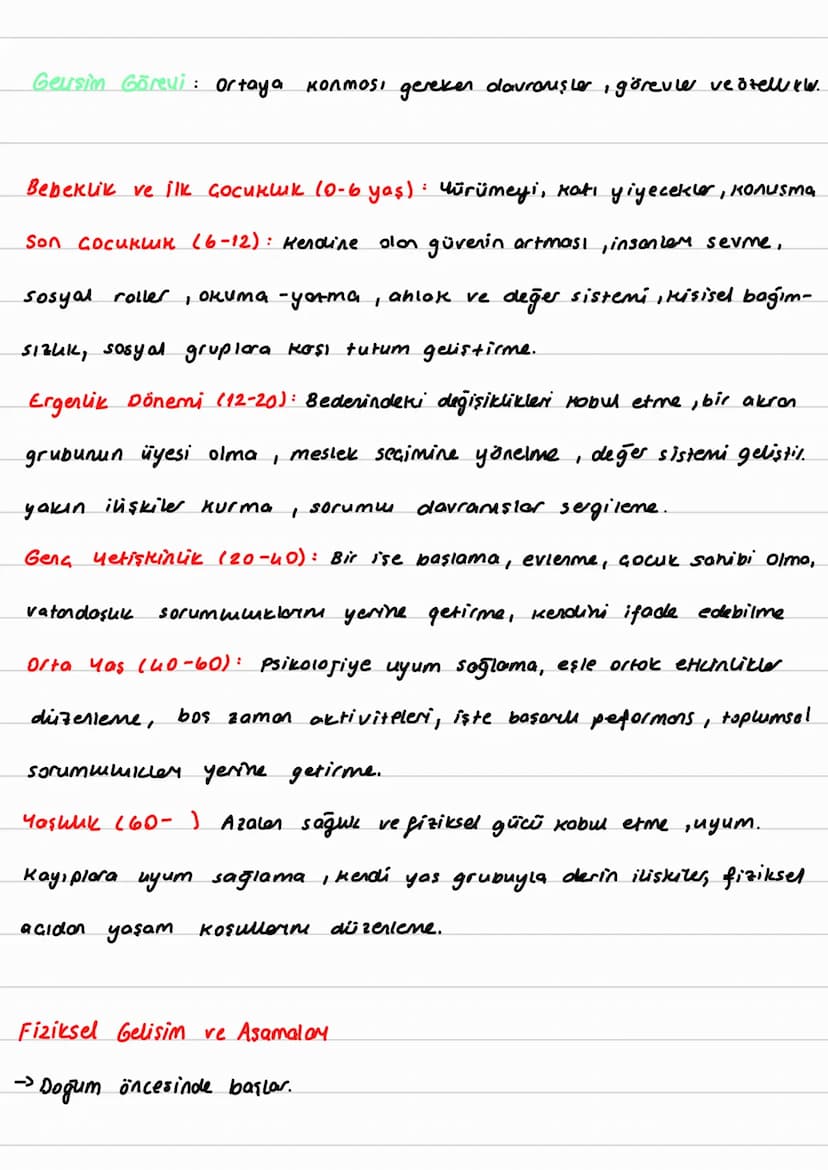 Gelişim Görevi : Ortaya konması gereken davranışlar , görevler ve özellikler.
Bebeklik ve ilk çocukluk (0-6 yaş) : Yürümeyi, katı yiyecekler , konuşma
Son çocukluk (6-12) : Kendine olan güvenin artması , insanları sevme ,
sosyal roller , okuma -yazma , ahlak ve değer sistemi , kişisel bağım-
sızlık, sosyal gruplara karşı tutum geliştirme.
Ergenlik Dönemi (12-20) : Bedenindeki değişiklikleri kabul etme , bir akran
grubunun üyesi olma , meslek seçimine yönelme , değer sistemi geliştir.
yakın ilişkiler kurma , sorumlu davranışlar sergileme .
Genç Yetişkinlik (20-40) : Bir işe başlama , evlenme, çocuk sahibi olma,
vatandaşlık sorumluluklarını yerine getirme, kendini ifade edebilme
Orta Yaş (40-60) : Psikolojiye uyum sağlama, eşle ortak etkinlikler
düzenleme, boş zaman aktiviteleri, işte başarılı peformans , toplumsal
sorumlulukları yerine getirme.
Yaşlılık (60- ) Azalan sağlık ve fiziksel gücü kabul etme , uyum.
Kayıplara uyum sağlama , kendi yaş grubuyla derin ilişkiler, fiziksel
açıdan yaşam koşullarını düzenleme.
Fiziksel Gelişim ve Aşamaları
→ Doğum öncesinde başlar.